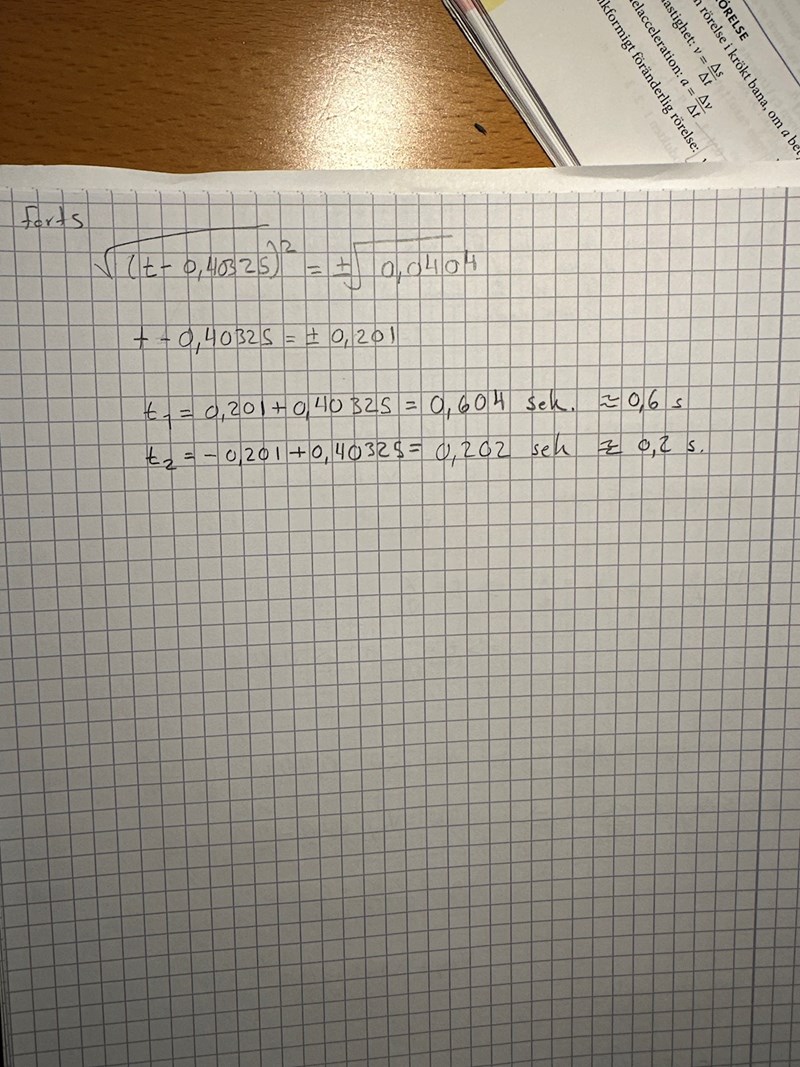 RÖRELSE
rörelse i krökt bana, om a
hastighet: v = Δs/Δt
acceleration: a = Δv/Δt
föränderlig rörelse:
forts
√(t - 0,40325)² = ±√0,0404
t - 0,40325 = ± 0,201
t₁ = 0,201 + 0,40325 = 0,604 sek. ≈ 0,6 s
t₂ = - 0,201 + 0,40325 = 0,202 sek ≈ 0,2 s.